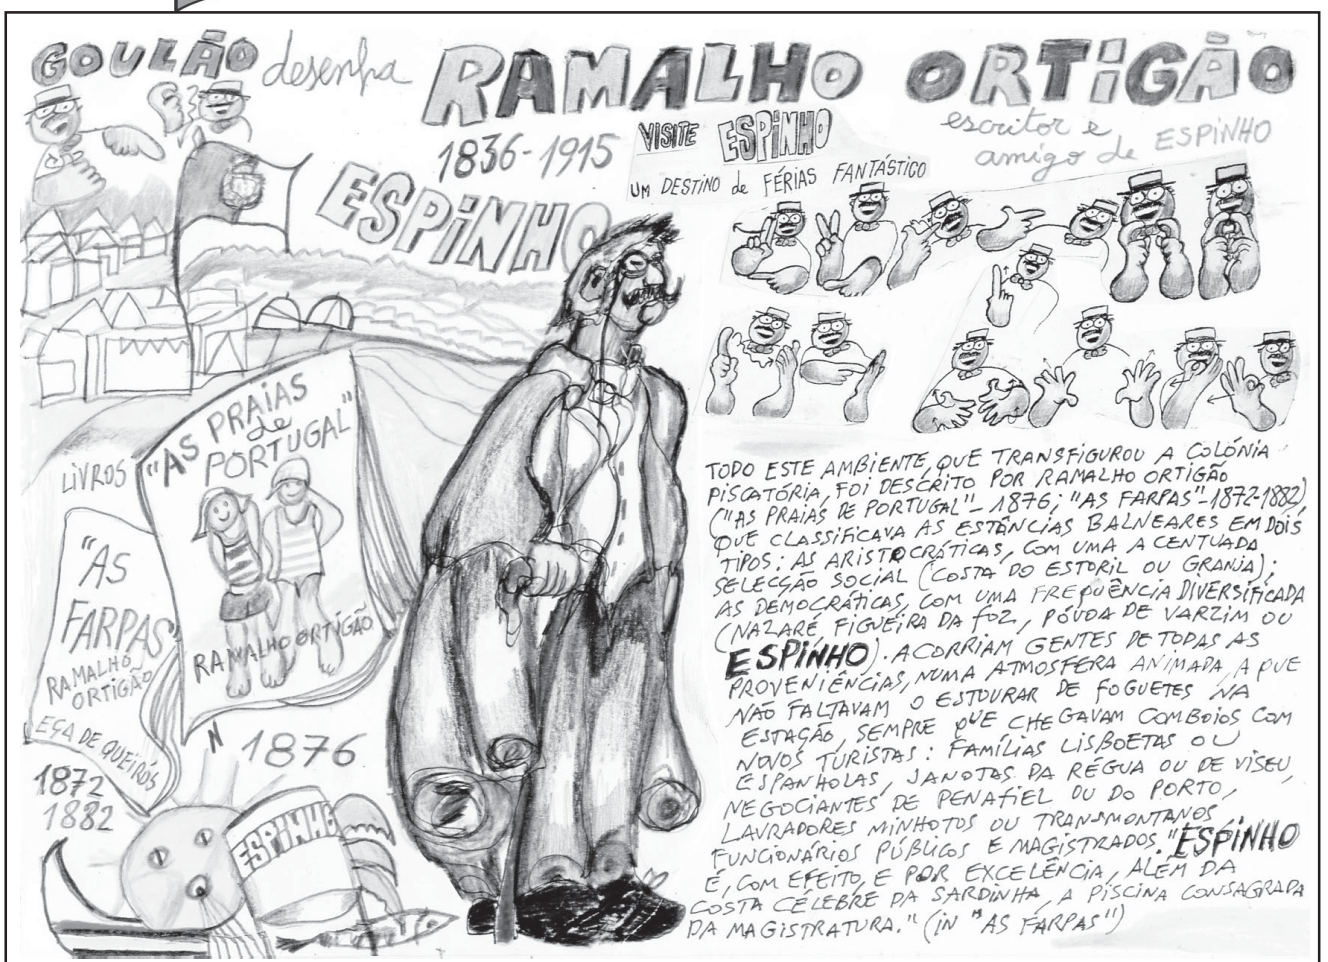 GOULÃO desenha RAMALHO ORTIGÃO
1836-1915
escritor e
amigo de ESPINHO
VISITE ESPINHO
UM DESTINO de FÉRIAS FANTÁSTICO
ESPINHO
LIVROS
"AS PRAIAS
de
PORTUGAL"
RAMALHO ORTIGÃO
1876
"AS
FARPAS"
RAMALHO
ORTIGÃO
EÇA DE QUEIRÓS
1872
1882
N
ESPINHO
TODO ESTE AMBIENTE, QUE TRANSFIGUROU A COLÓNIA
PISCATÓRIA, FOI DESCRITO POR RAMALHO ORTIGÃO
("AS PRAIAS DE PORTUGAL"- 1876; "AS FARPAS"-1872-1882),
QUE CLASSIFICAVA AS ESTÂNCIAS BALNEARES EM DOIS
TIPOS: AS ARISTOCRÁTICAS, COM UMA ACENTUADA
SELECÇÃO SOCIAL (COSTA DO ESTORIL OU GRANJA);
AS DEMOCRÁTICAS, COM UMA FREQUÊNCIA DIVERSIFICADA
(NAZARÉ FIGUEIRA DA FOZ, PÓVOA DE VARZIM OU
ESPINHO). ACORRIAM GENTES DE TODAS AS
PROVENIÊNCIAS, NUMA ATMOSFERA ANIMADA, A QUE
NÃO FALTAVAM O ESTOURAR DE FOGUETES NA
ESTAÇÃO, SEMPRE QUE CHEGAVAM COMBOIOS COM
NOVOS TURISTAS: FAMÍLIAS LISBOETAS OU
ESPANHOLAS, JANOTAS DA RÉGUA OU DE VISEU,
NEGOCIANTES DE PENAFIEL OU DO PORTO,
LAVRADORES MINHOTOS OU TRANSMONTANOS
FUNCIONÁRIOS PÚBLICOS E MAGISTRADOS. "ESPINHO
É, COM EFEITO, E POR EXCELÊNCIA, ALÉM DA
COSTA CÉLEBRE DA SARDINHA, A PISCINA CONSAGRADA
DA MAGISTRATURA." (in "AS FARPAS")